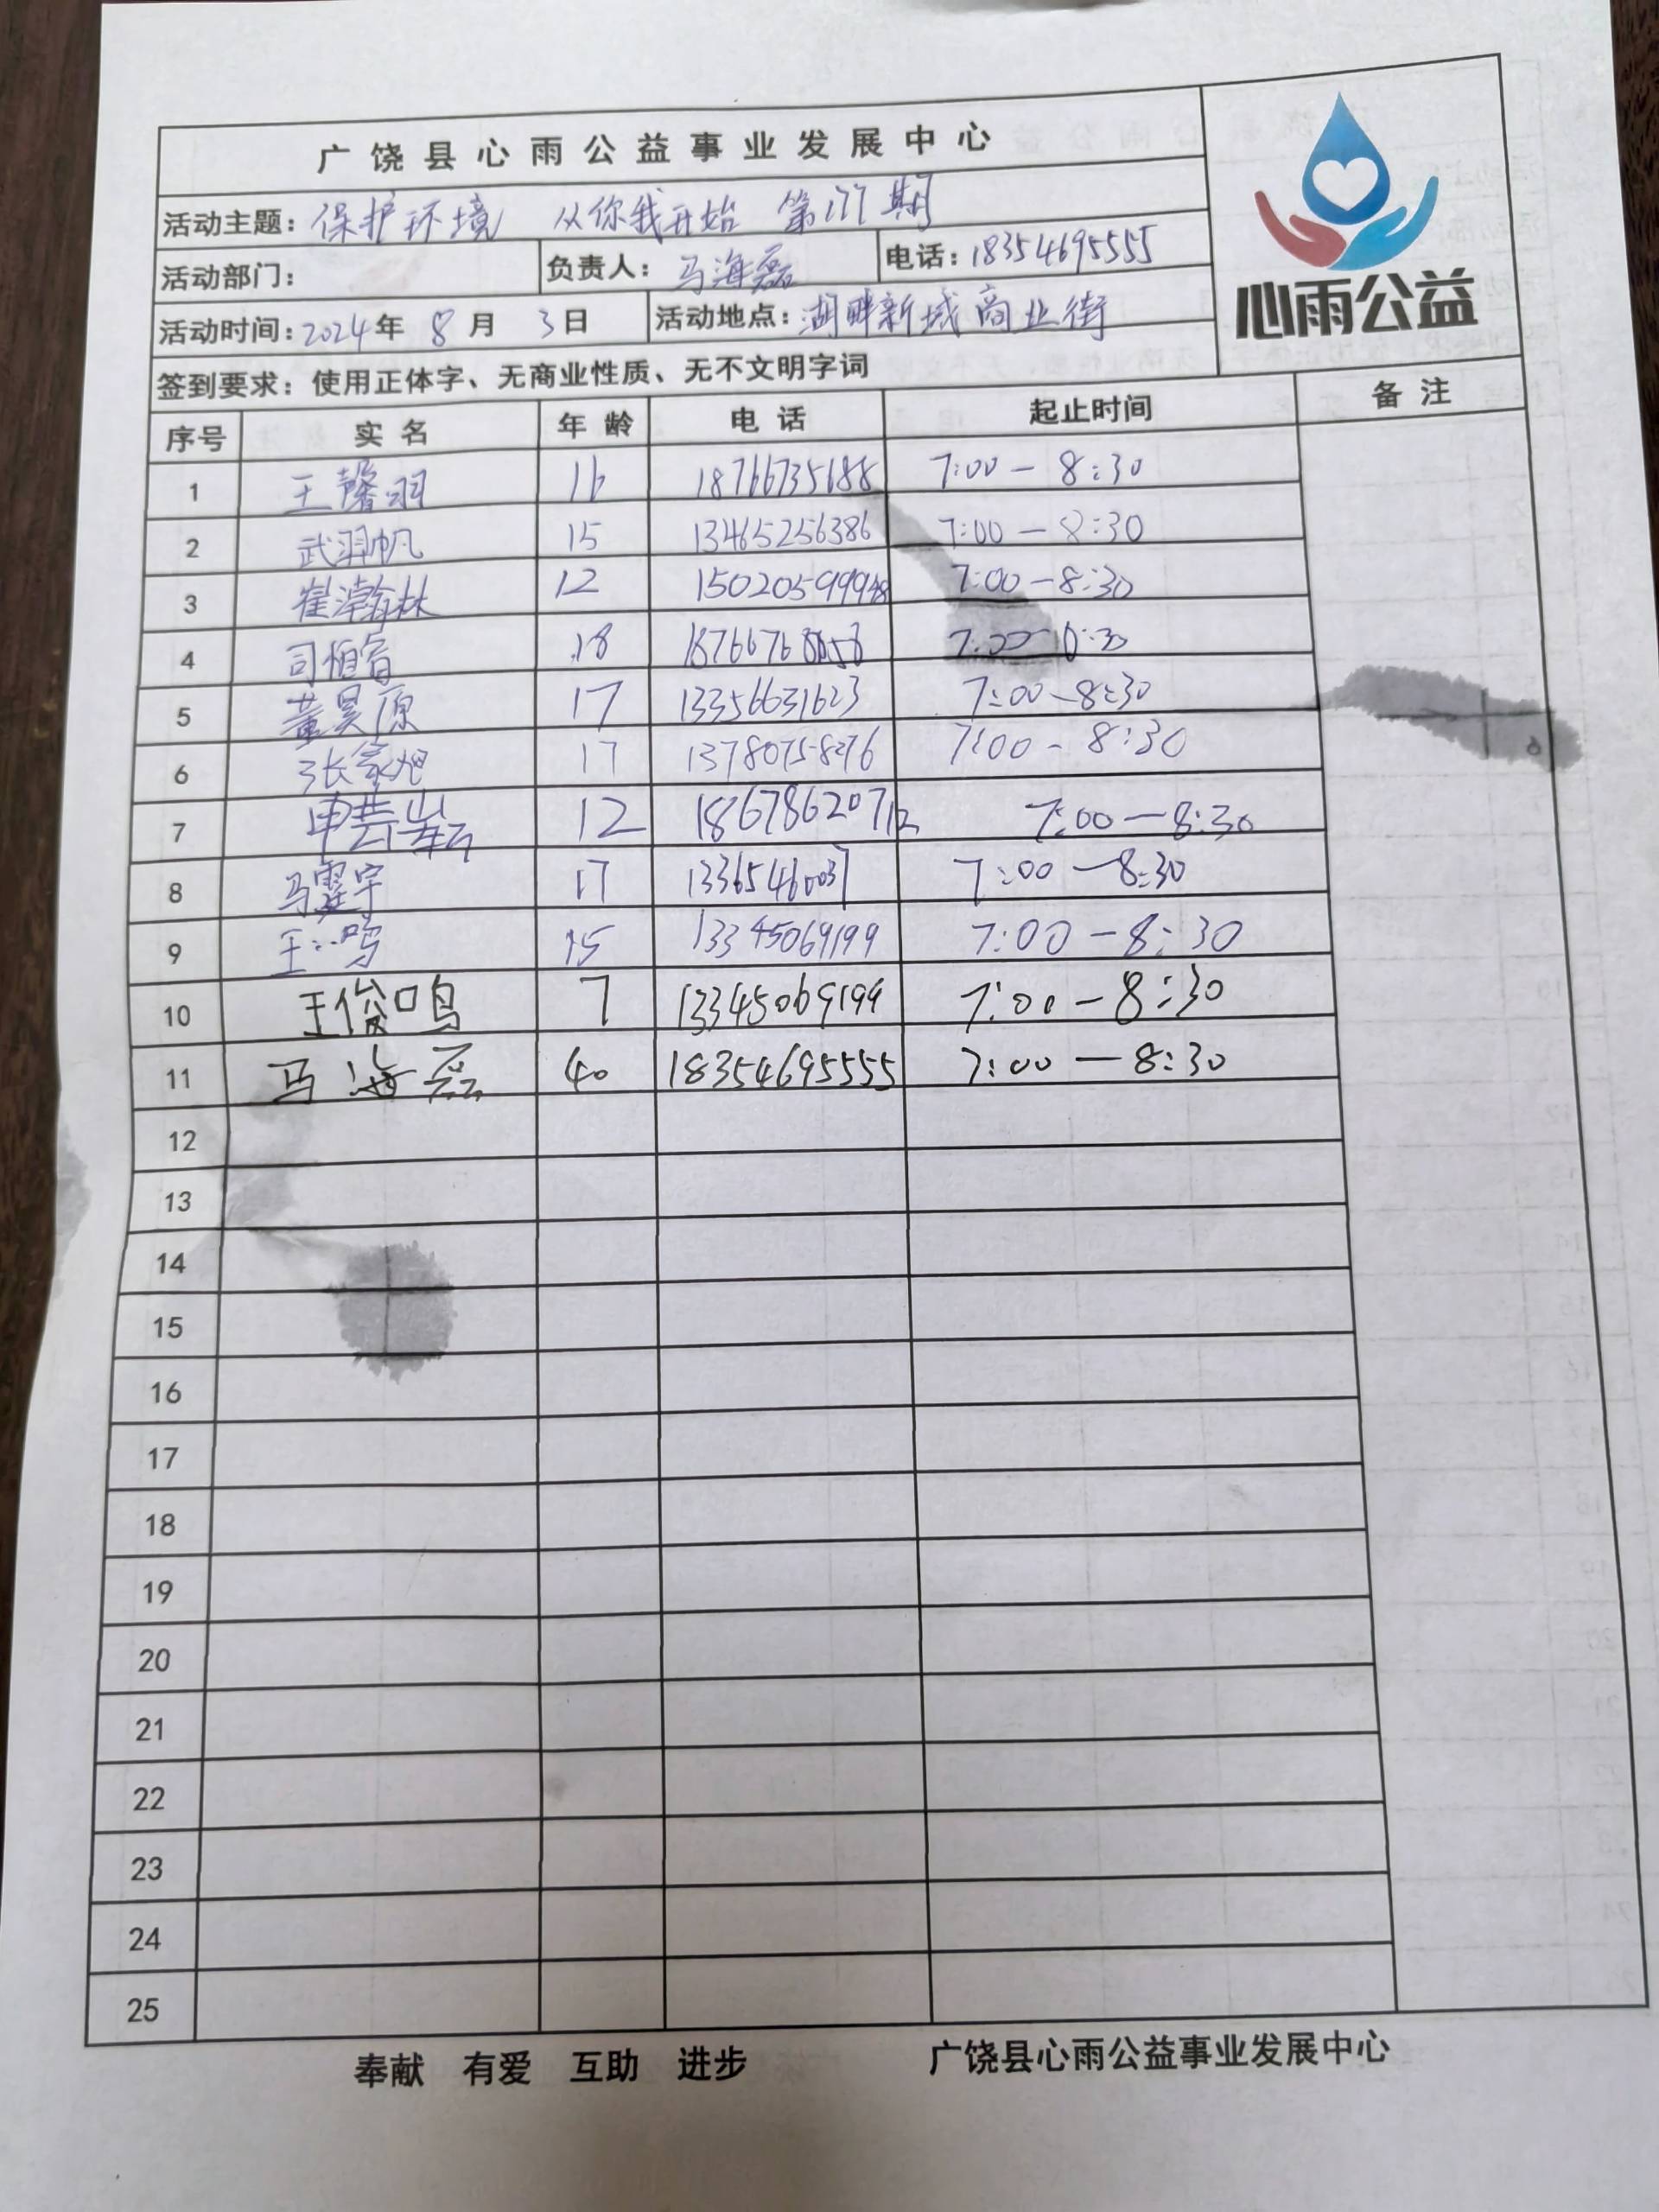 广饶县心雨公益事业发展中心
心雨公益
活动主题：保护环境 从你我开始 第177期
活动部门： 负责人：马海磊 电话：18354695555
活动时间：2024年8月3日 活动地点：湖畔新城商业街
签到要求：使用正体字、无商业性质、无不文明字词
序号 实名 年龄 电话 起止时间 备注
1 王馨羽 16 18766735688 7:00-8:30
2 武羽帆 15 13465256386 7:00-8:30
3 崔瀚林 12 7:00-8:30
4 司恒睿 18
5 董昊原 17 13356631623 7:00-8:30
6 17 7:00-8:30
7 12 18678620712 7:00-8:30
8 马霆宇 17 13365460037 7:00-8:30
9 王一鸣 15 13345069199 7:00-8:30
10 王俊鸣 7 13345069199 7:00-8:30
11 马海磊 40 18354695555 7:00-8:30
12
13
14
15
16
17
18
19
20
21
22
23
24
25
奉献 有爱 互助 进步 广饶县心雨公益事业发展中心